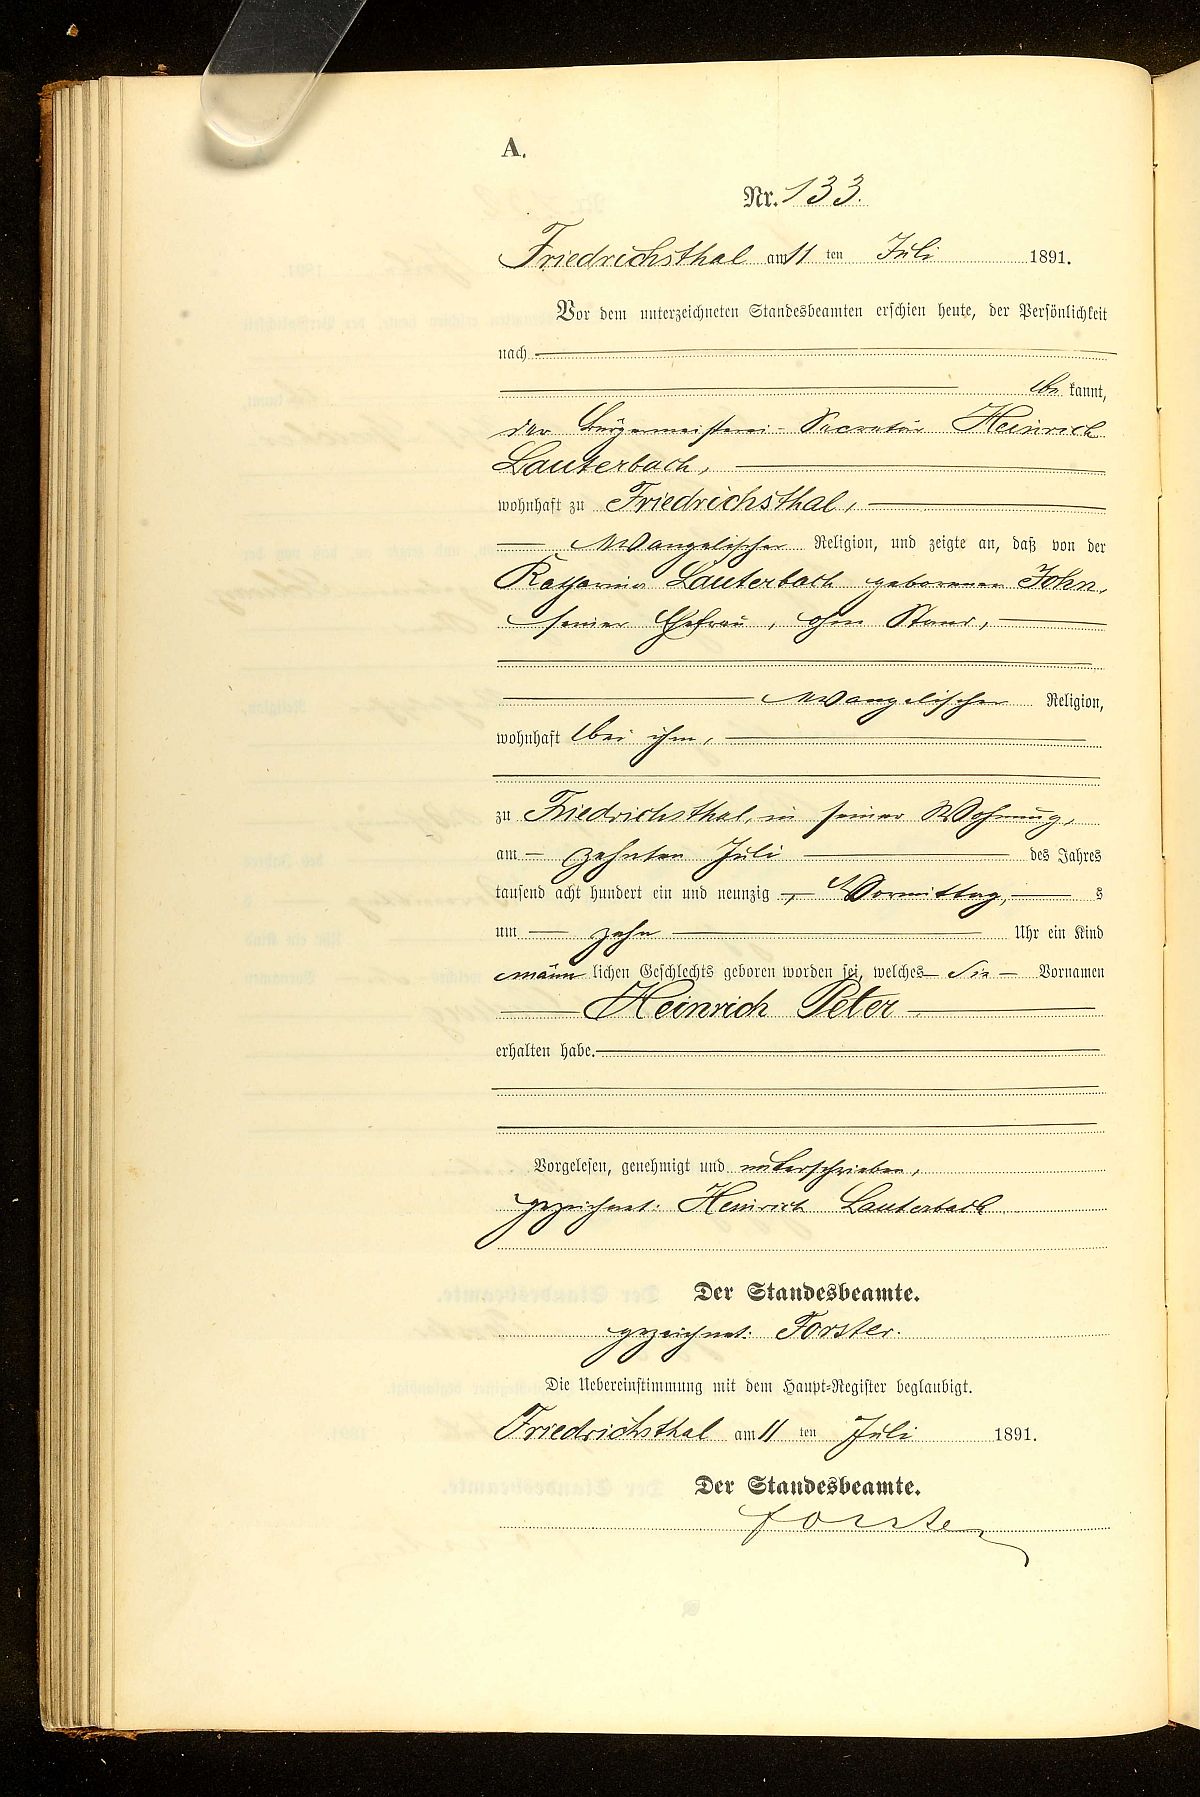 A.
Nr. 133.
Friedrichsthal am 11 ten Juli 1891.
Vor dem unterzeichneten Standesbeamten erschien heute, der Persönlichkeit
nach
be kannt,
der Bürgermeisterei-Secretär Heinrich
Lauterbach,
wohnhaft zu Friedrichsthal,
evangelischer Religion, und zeigte an, daß von der
Katharina Lauterbach geborenen John,
seiner Ehefrau, ohne Stand,
evangelischer Religion,
wohnhaft bei ihm,
zu Friedrichsthal, in seiner Wohnung,
am zehnten Juli des Jahres
tausend acht hundert ein und neunzig, Vormittag, s
um zehn Uhr ein Kind
männ lichen Geschlechts geboren worden sei, welches die Vornamen
Heinrich Peter
erhalten habe.
Vorgelesen, genehmigt und unterschrieben,
gezeichnet: Heinrich Lauterbach
Der Standesbeamte.
gezeichnet: Forster.
Die Uebereinstimmung mit dem Haupt-Register beglaubigt.
Friedrichsthal am 11 ten Juli 1891.
Der Standesbeamte.
Forster